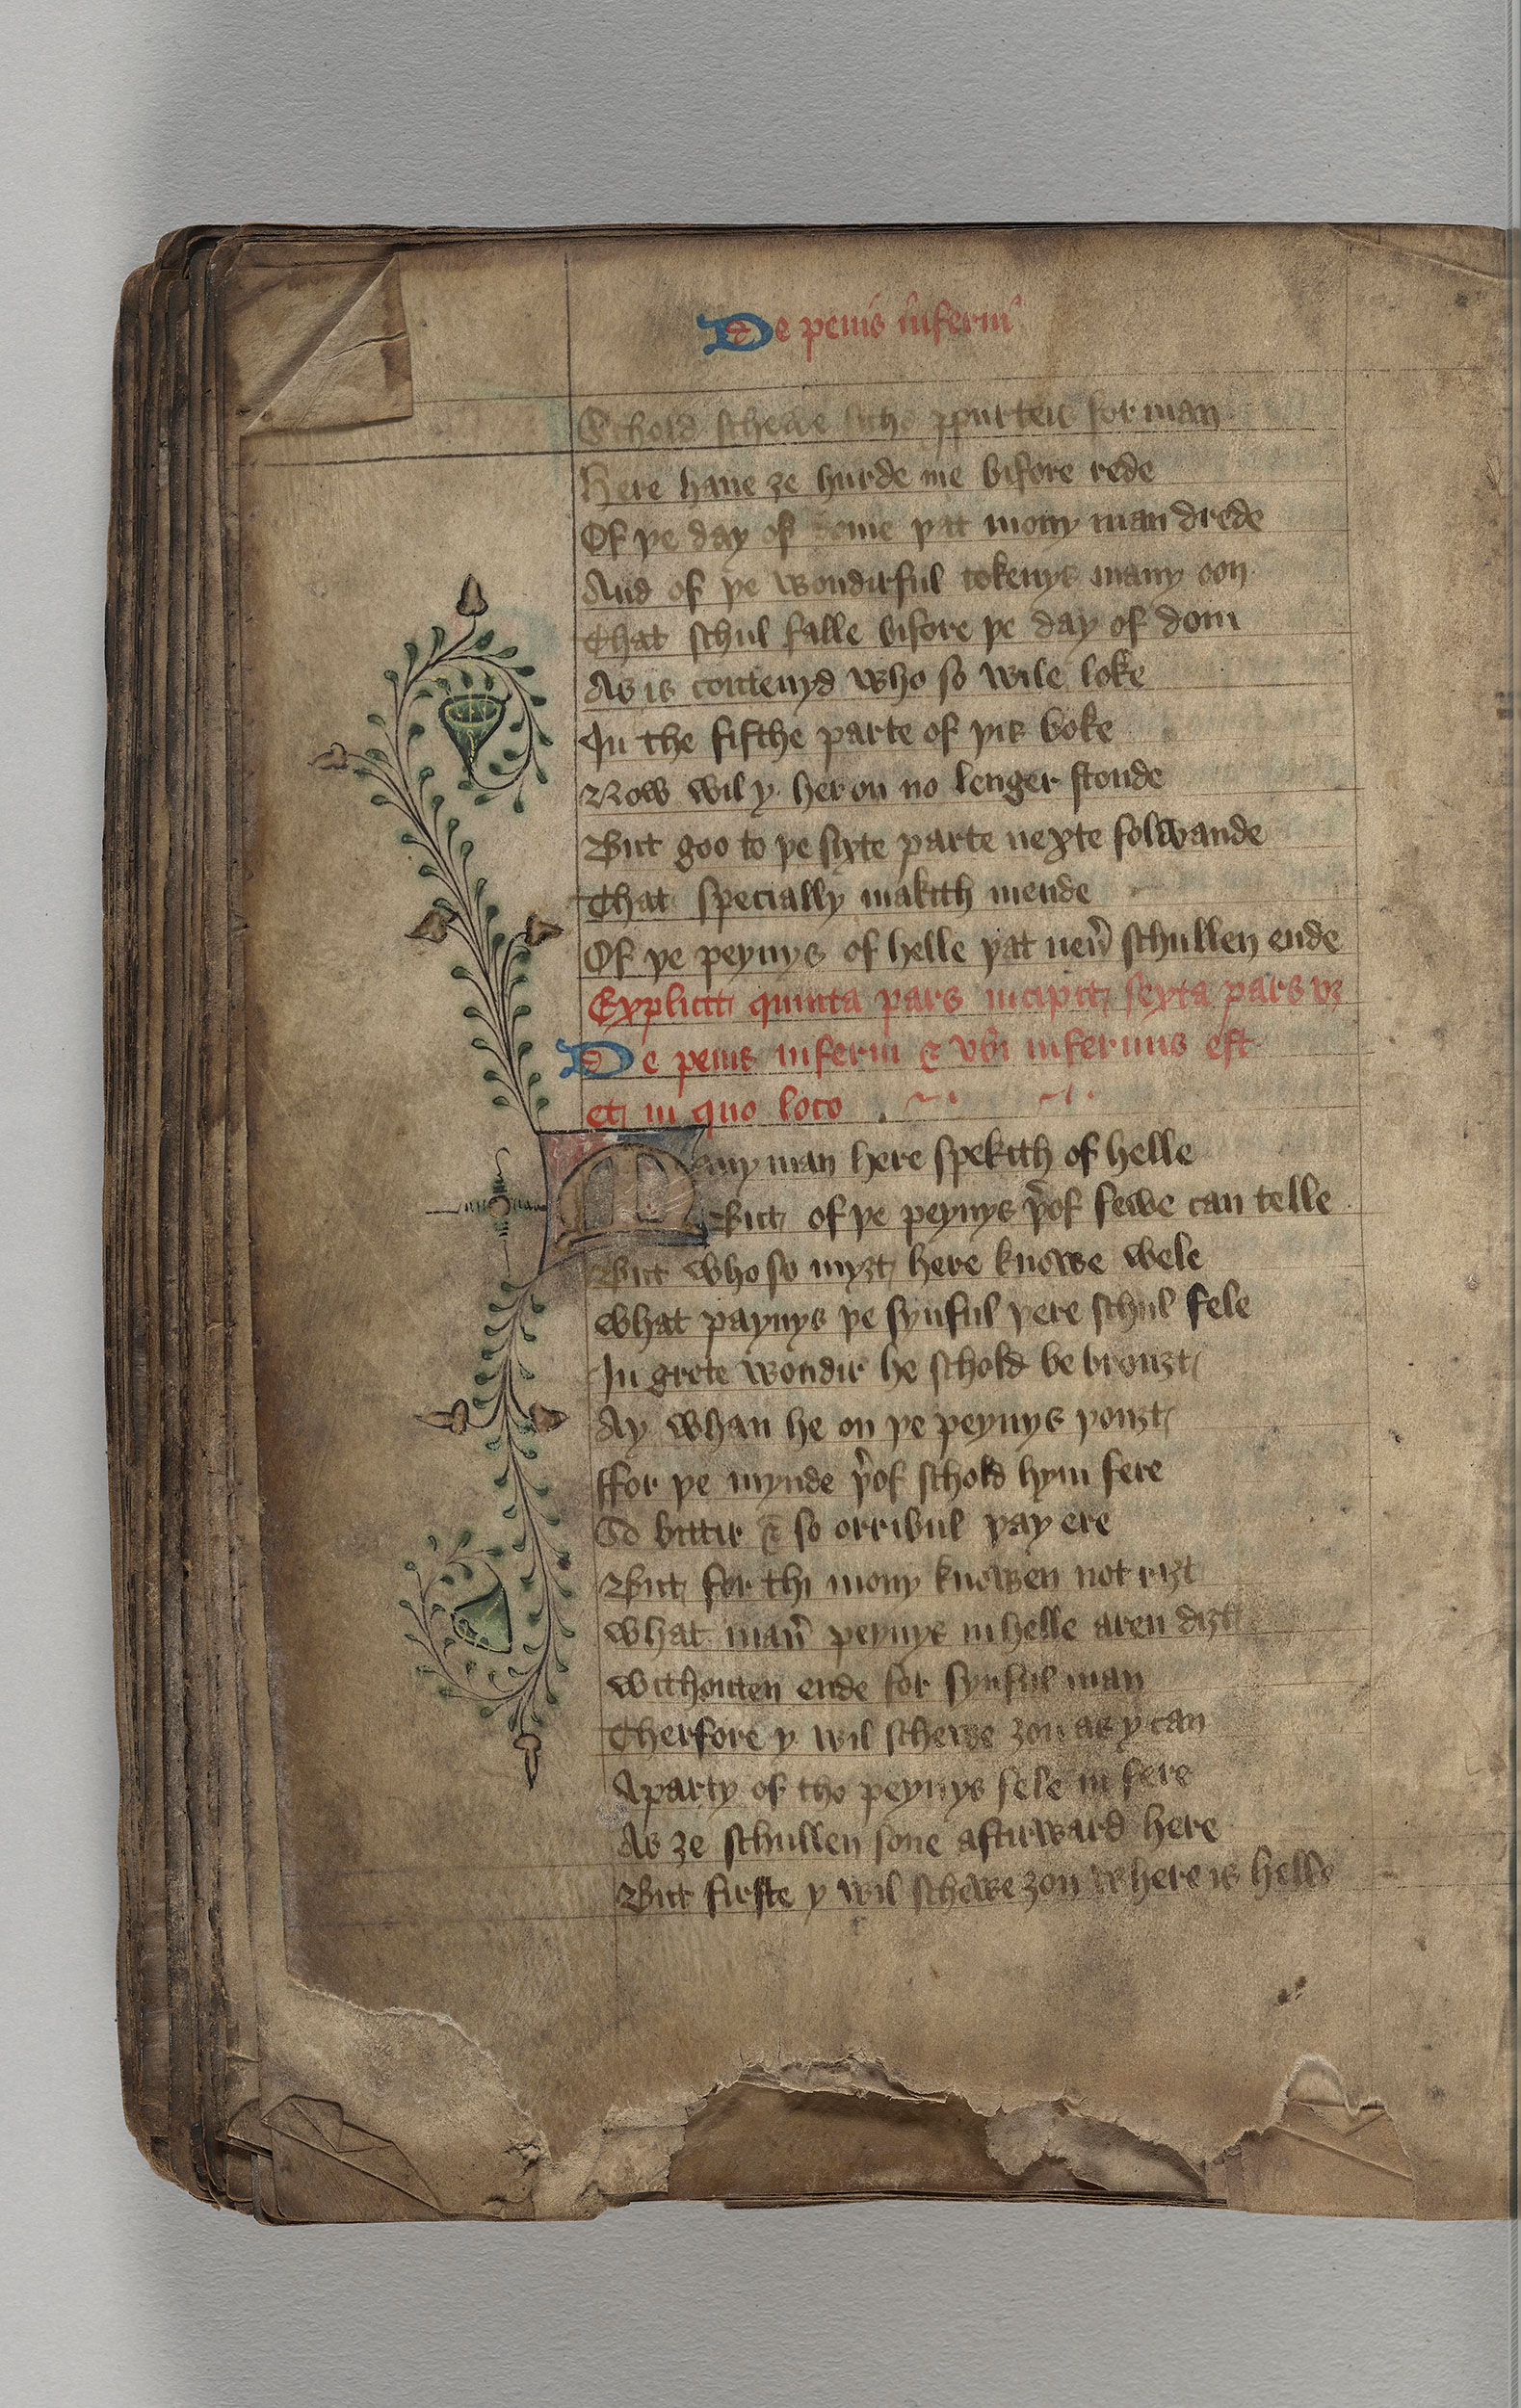 De penis inferni
Schold schewe suche ꝓpurteis for man
Here haue ȝe hurde me bifore rede
Of þe day of dome þat mony man drede
And of þe wondirful tokenys many oon
That schul falle bifore þe day of dom
As is contenyd who so wile loke
In the fifthe parte of þis boke
Now wil y her on no lenger stonde
But goo to þe sixte parte nexte folwande
That specially makith mende
Of þe peynys of helle þat neu̾ schullen ende
Explicit quinta pars incipit sexta pars
De penis inferni & vbi infernus est
et in quo loco
Mony man here spekith of helle
But of þe peynys þ̾of fewe can telle
But who so myȝt here knowe wele
what paynys þe synful þere schul fele
In grete wondir he schold be brouȝt
Ay whan he on þe peynys þouȝt
ffor þe mynde þ̾of schold hym fere
So bittir & so orribul þay ere
But for thi mony knowen not riȝt
what man̾ peynys in helle aren diȝt
withouten ende for synful man
Therfore y wil schewe ȝou as y can
A party of tho peynys fele in fere
As ȝe schullen sone aftirward here
But firste y wil schewe ȝou where is helle